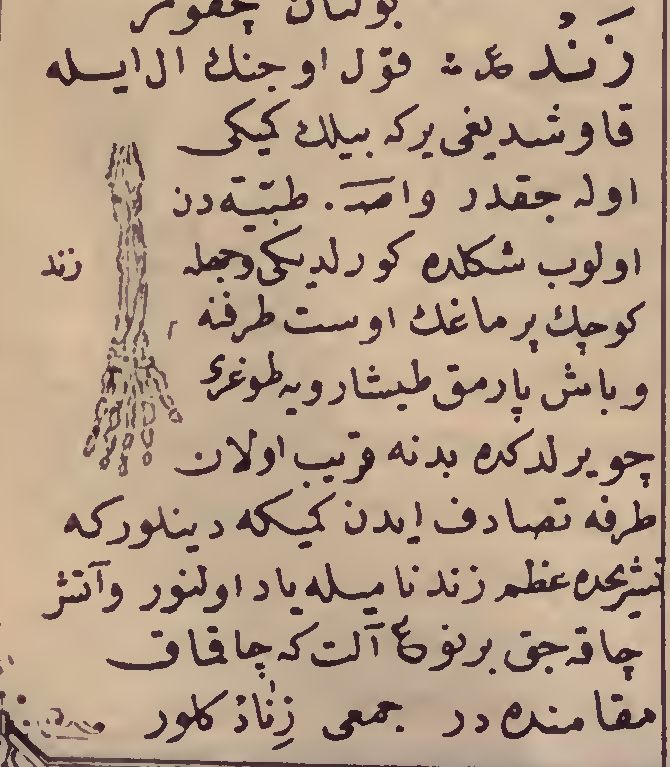 بولنان چقومر
زَنْد ع : قول اوجنك ال ايسله
قاوشديغى يركه بيلك كميكى
اوله جقدر واصـ . طبيه دن
اولوب شكلده كورلديكى وجهله
زند
كوچك پرماغك اوست طرفنه
وباش پارمق طيشارويه طوغرى
چويرلدكده بدنه قريب اولان
طرفه تصادف ايدن كميكه دينلوركه
تشريحده عظم زند ناميله ياد اولنور وآتش
چاقه جق برنوع آلت كه چاقماق
مقامنده در جمعى زِنَادْ كلور